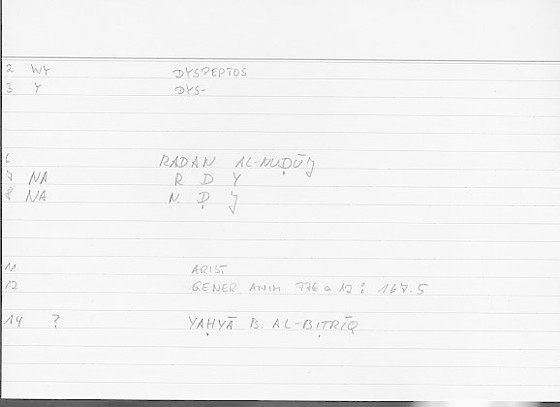 2 WY DYSPEPTOS
3 Y DYS-
6 RADAN AL-NUḌŪJ
7 NA R D Y
8 NA N Ḍ J
11 ARIST
12 GENER ANIM 776 a 12 : 167.5
14 ? YAḤYĀ B. AL-BIṬRĪQ